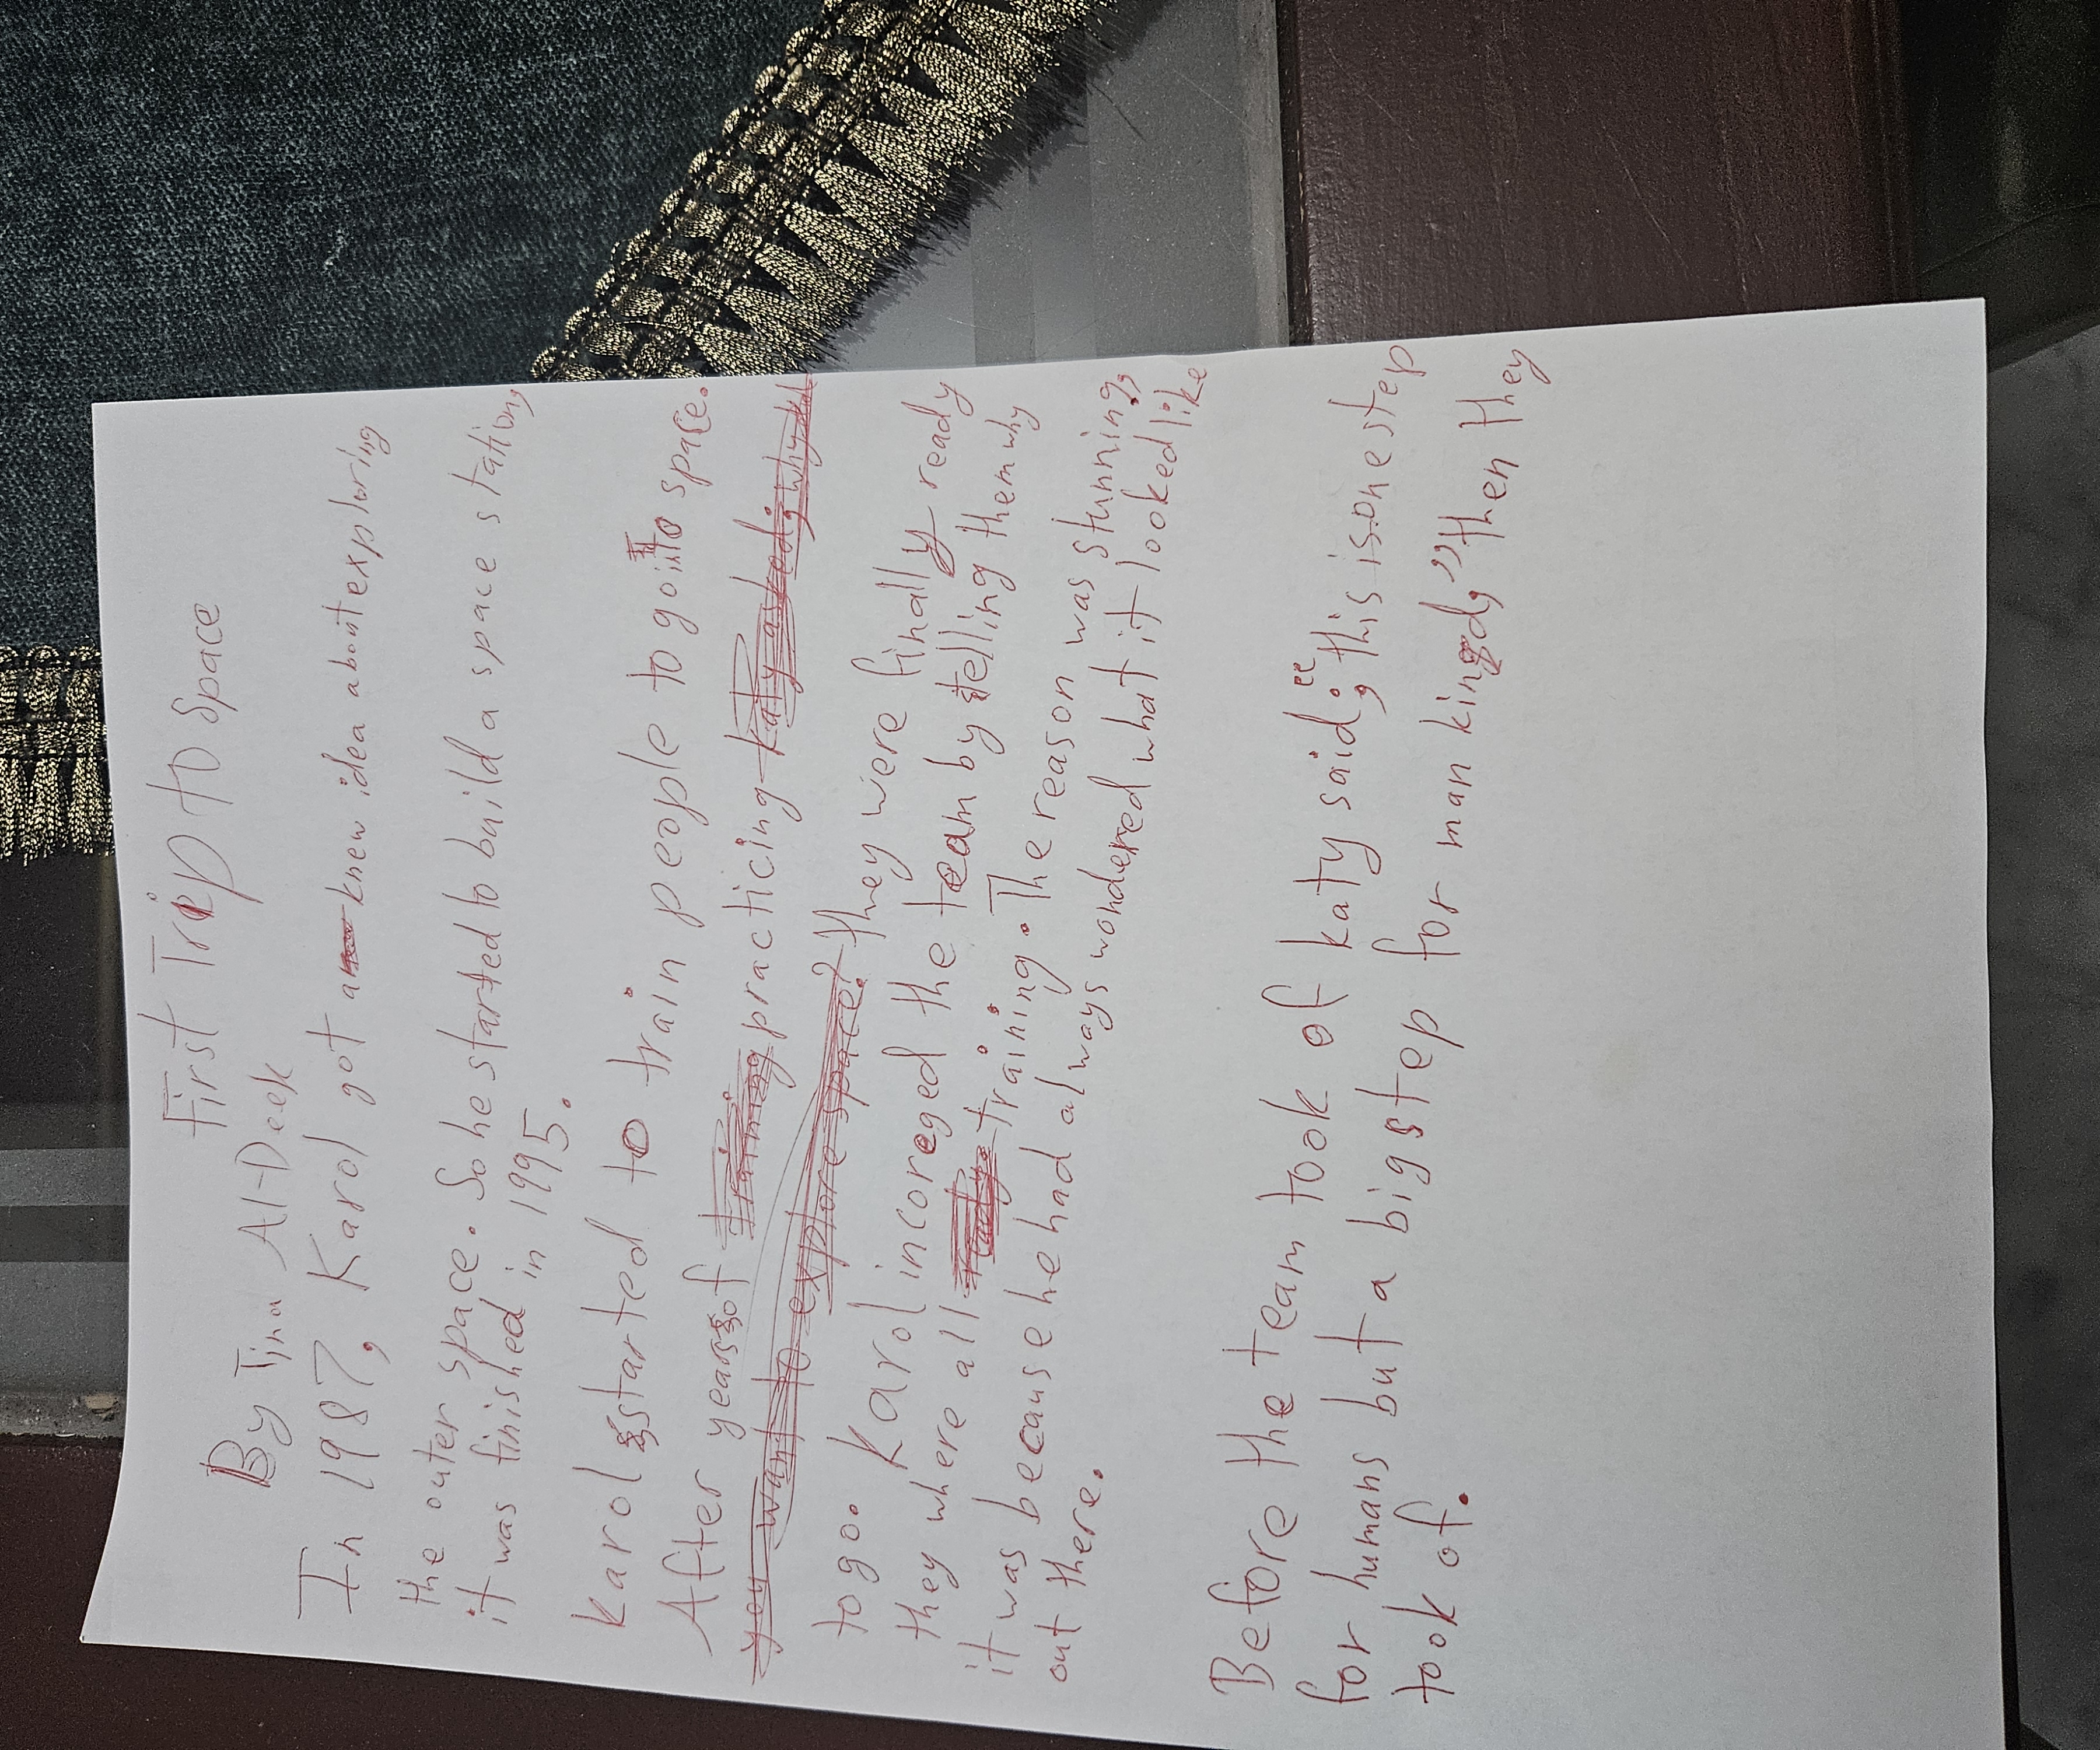 First Trip to Space
By Tina Al-Deek
In 1987, Karol got a knew idea about exploring
the outer space. So he started to build a space station,
it was finished in 1995.
Karol started to train people to go into space.
After years of training practicing katy asked; why do
you want to explore space? they were finally ready
to go. Karol incoreged the team by telling them why
they where all training. The reason was stunning,
it was because he had always wondered what it looked like
out there.
Before the team took of katy said; "this is one step
for humans but a big step for man kingd," then they
took of.